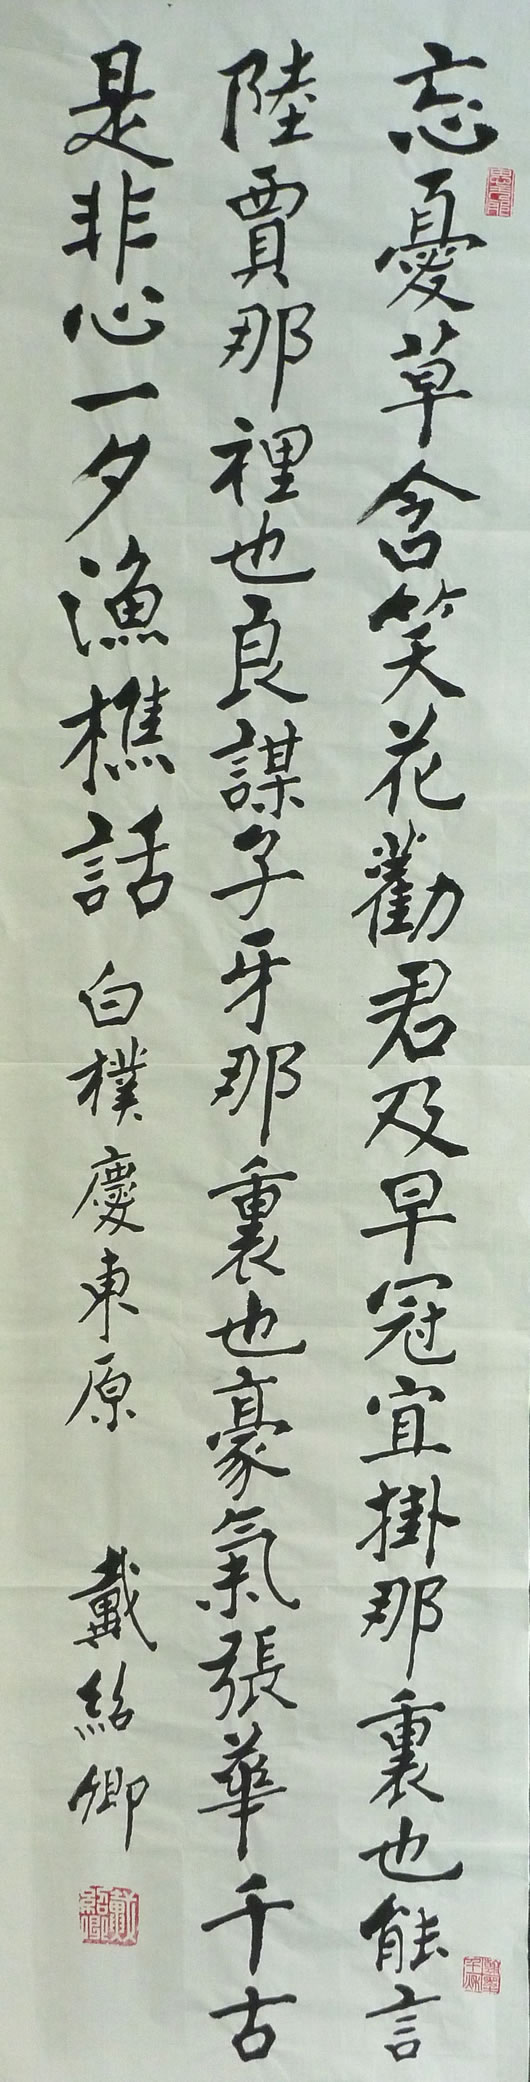 忘憂草含笑花勸君及早冠宜掛那裏也能言
陸賈那裡也良謀子牙那裏也豪氣張華千古
是非心一夕漁樵話
白樸慶東原
戴紹卿
戴紹卿